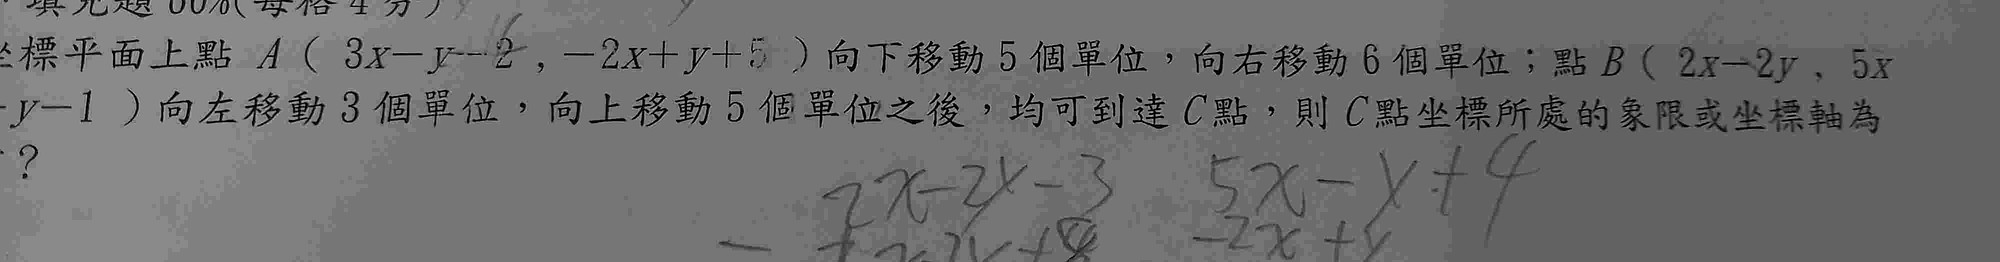 填充題 60%(每格 4 分)
坐標平面上點 A ( 3x－y－2 , －2x＋y＋5 ) 向下移動 5 個單位，向右移動 6 個單位；點 B ( 2x－2y , 5x
－y－1 ) 向左移動 3 個單位，向上移動 5 個單位之後，均可到達 C 點，則 C 點坐標所處的象限或坐標軸為
?
2x-2y-3 5x-y+4
-2x+y